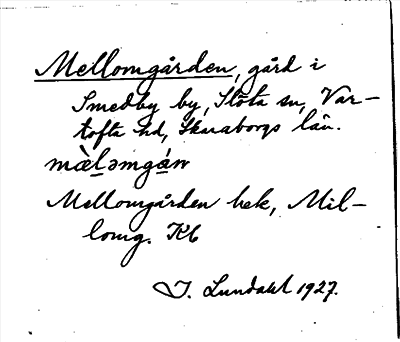 Mellomgården, gård i
Smedby by, Slöta sn, Var-
tofta hd, Skaraborgs län.
mæ̀lǝmgáṇ
Mellomgården hek, Mel-
lomg. Kb
J. Lundahl 1927.